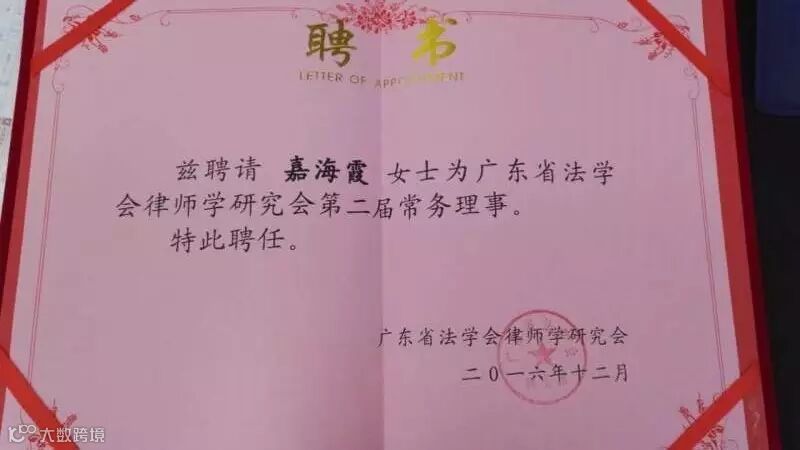 聘书
LETTER OF APPOINTMENT
兹聘请 嘉海霞 女士为广东省法学
会律师学研究会第二届常务理事。
特此聘任。
广东省法学会律师学研究会
二〇一六年十二月
大数跨境